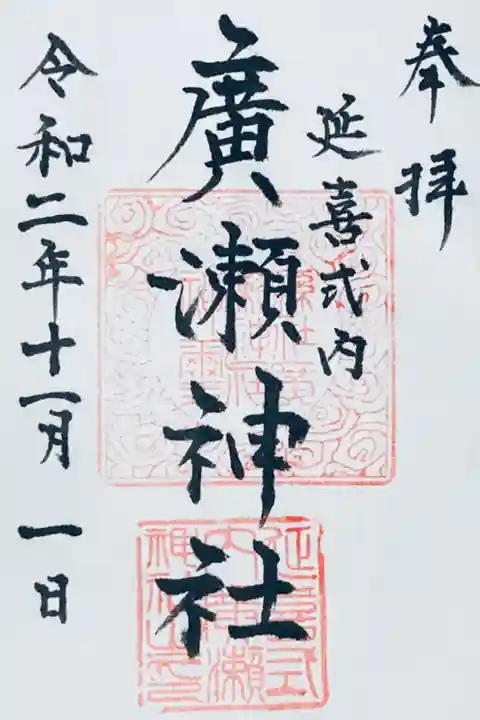 奉拝
延喜式内
廣瀬神社
令和二年十一月 一日
延喜式
内廣瀬
神社之印